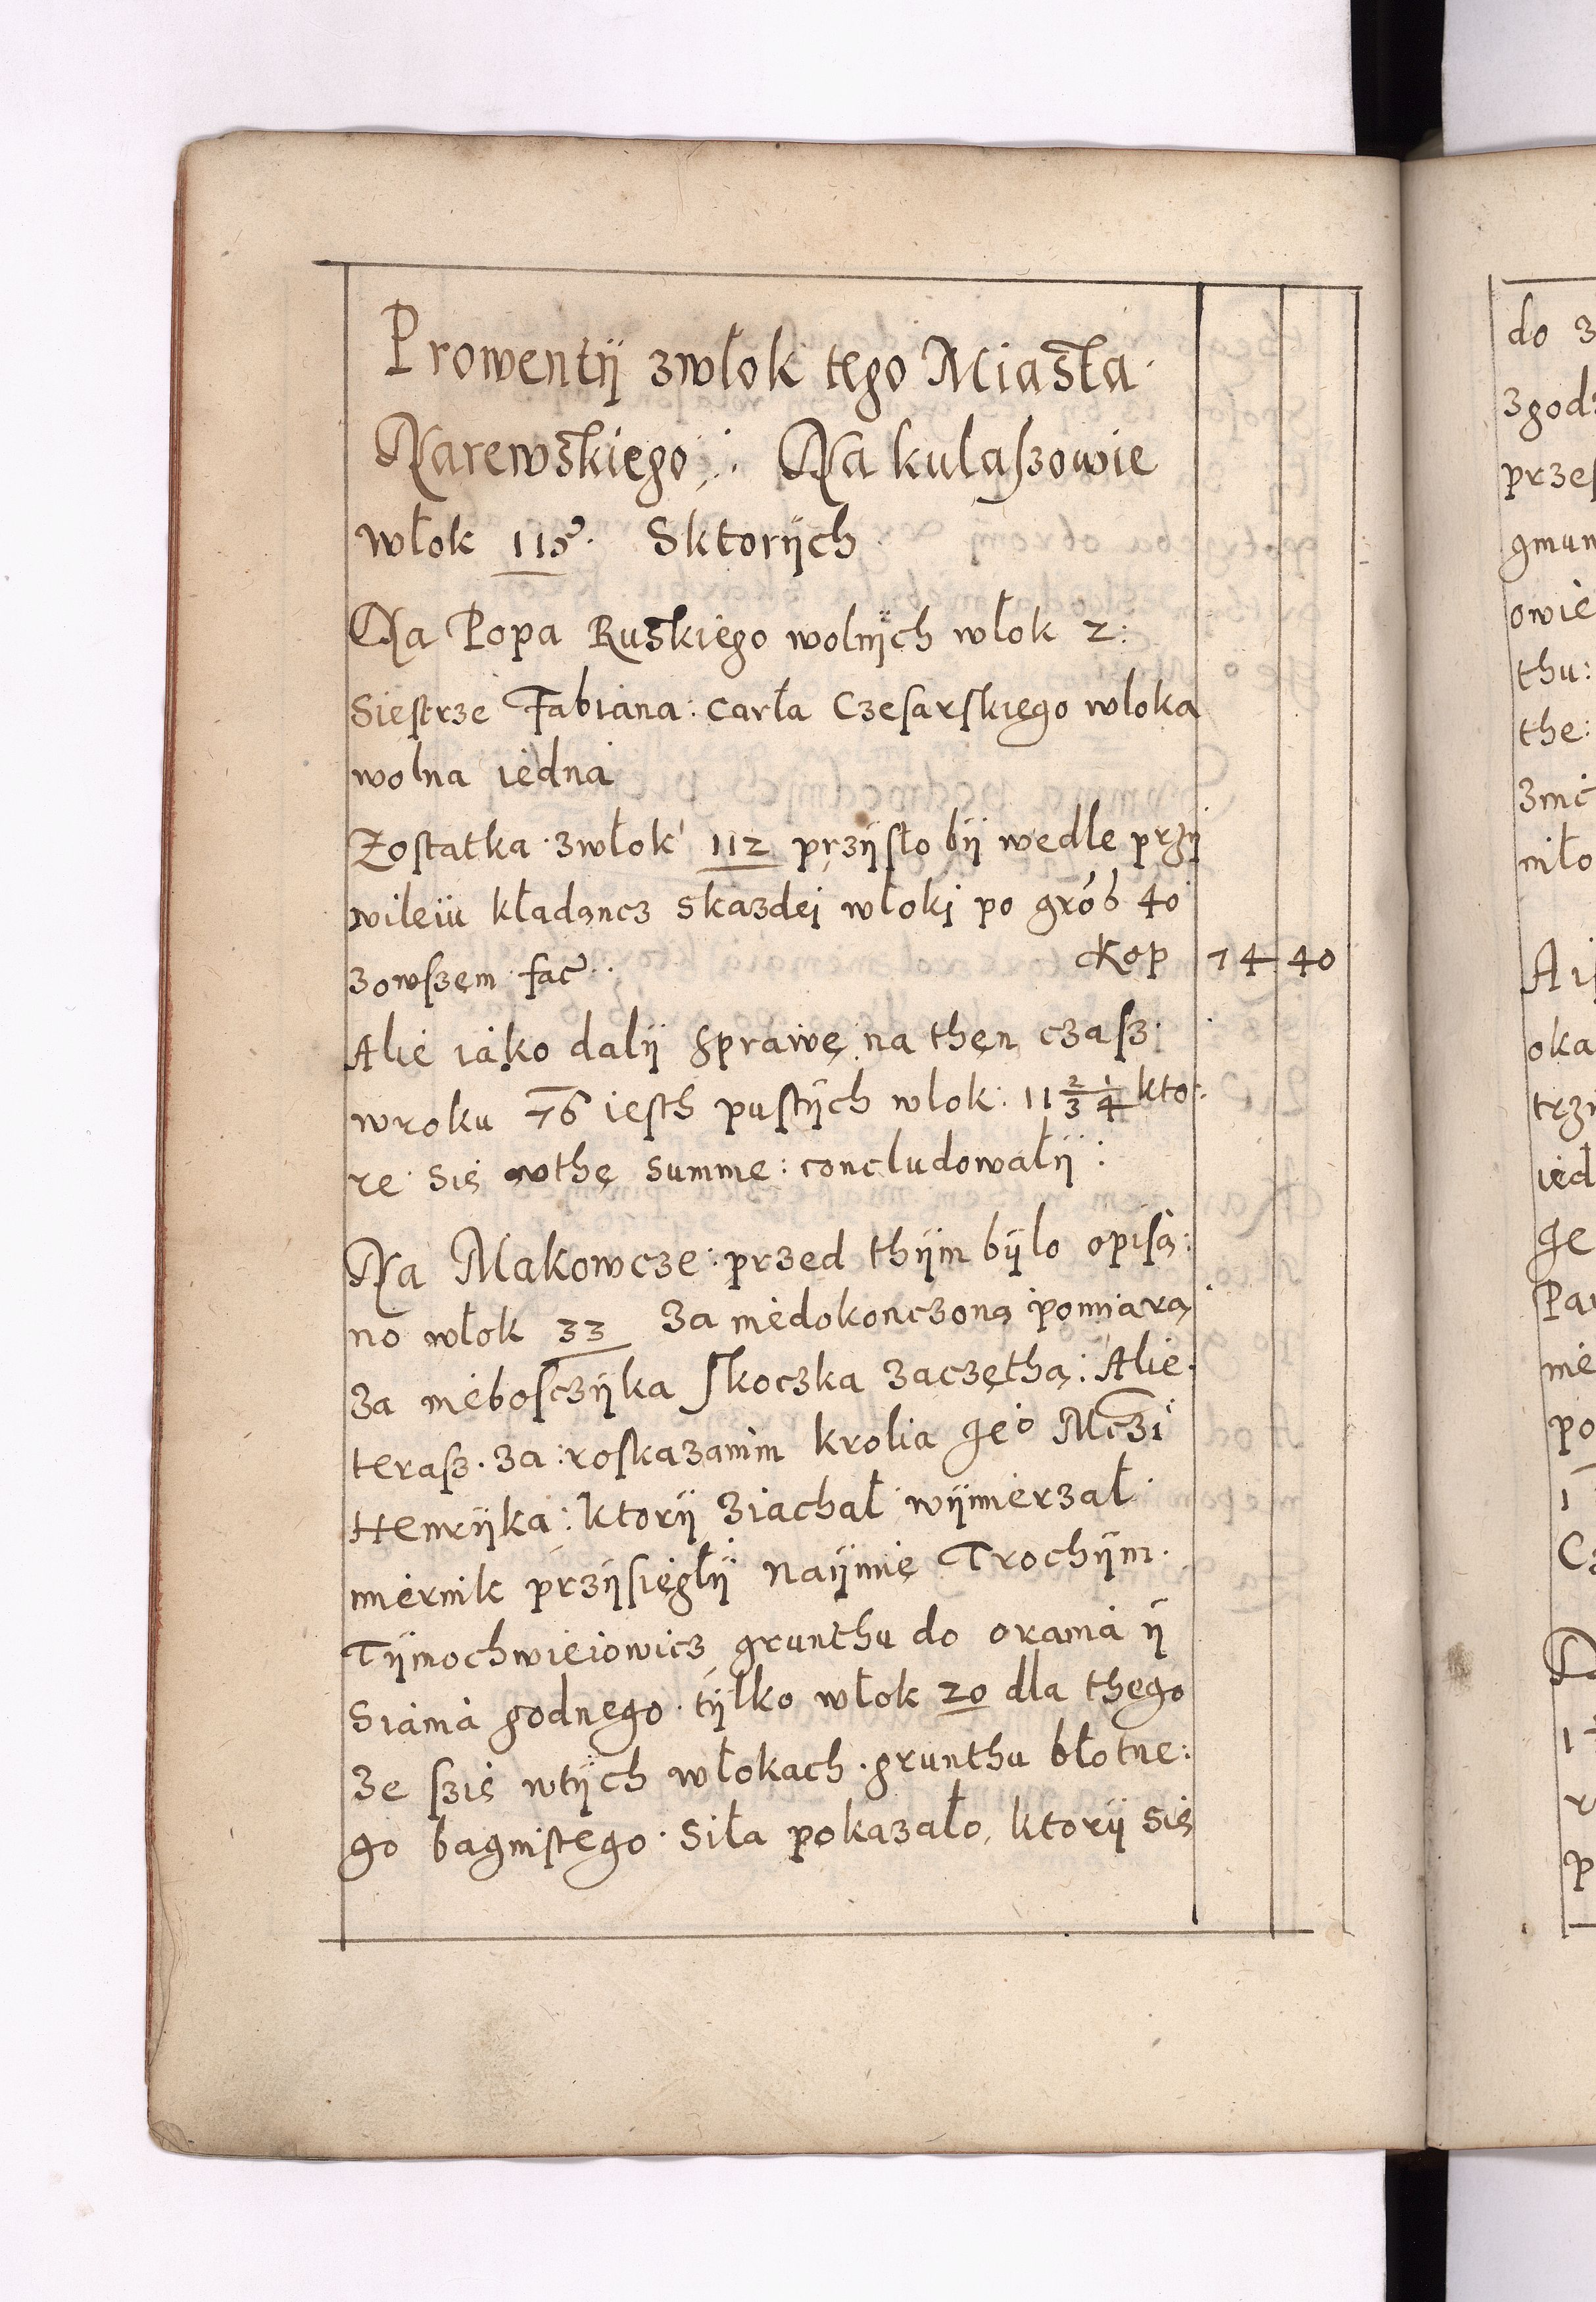 Prowentÿ zwłok tego Miasta
Narewskiego : Na kulaszowie
włok 115. Sktorÿch
Na Popa Ruskiego wolnÿch włok 2:
Siestrze Fabiana: carła Czesarskiego włoka
wolna iedna
Zostatka zwłok 112 przÿsło bÿ wedle przÿ
wileiu kładąncz skazdei włoki po 40
zowszem fac Kop 74 40
Alie iako dalÿ sprawę na then czasz
wroku 76 iesth pustÿch włok: 11 2/3 1/4 kto:
re sie wthę summe: concludowalÿ:
Na Makowcze: przed thÿm bÿlo opisa:
no włok 33 Za niedokonczoną pomiarą
Za niebosczÿka Skoczka zaczęthą: Alie
terasz. za: roskazanim krolia Je⁰ Mczi
Henrÿka: ktorÿ ziachał wÿmierzał
miernik przÿsięglÿ naÿmię Trochÿm
Tÿmochwieiowicz grunthu do orania ÿ
Siania godnego. tÿlko włok 20 dla thego
Ze szie wtÿch włokach. grunthu błotne:
go bagnistego. Siła pokazało, ktorÿ sie
do 3
zgodz
przes
gmun
owie
thu:
the:
nie
niło
Ai
oka
trzn
ied
Je
Pa
nie
po
1
p